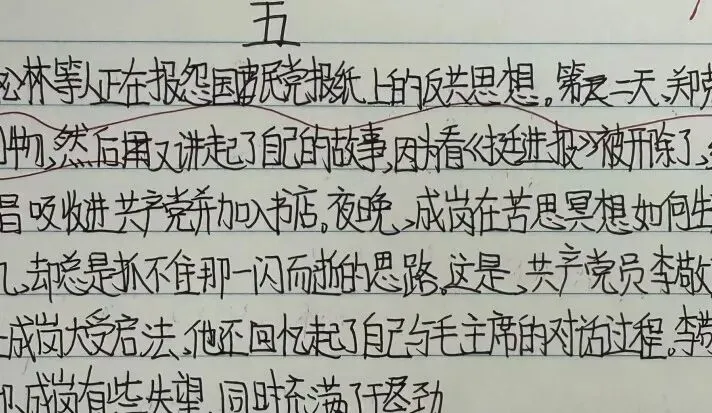 五
松林等人正在报怨国民党报纸上的反共思想。第二天、郑克
刊物,然后又讲起了自己的故事,因为看《挺进报》被开除了,
昌吸收进共产党并加入书店。夜晚、成岗在苦思冥想如何生
几,却总是抓不住那一闪而逝的思路。这是、共产党员李敬
成岗大受启法、他还回忆起了自己与毛主席的对话过程。李敬
成岗有些失望,同时充满了干劲